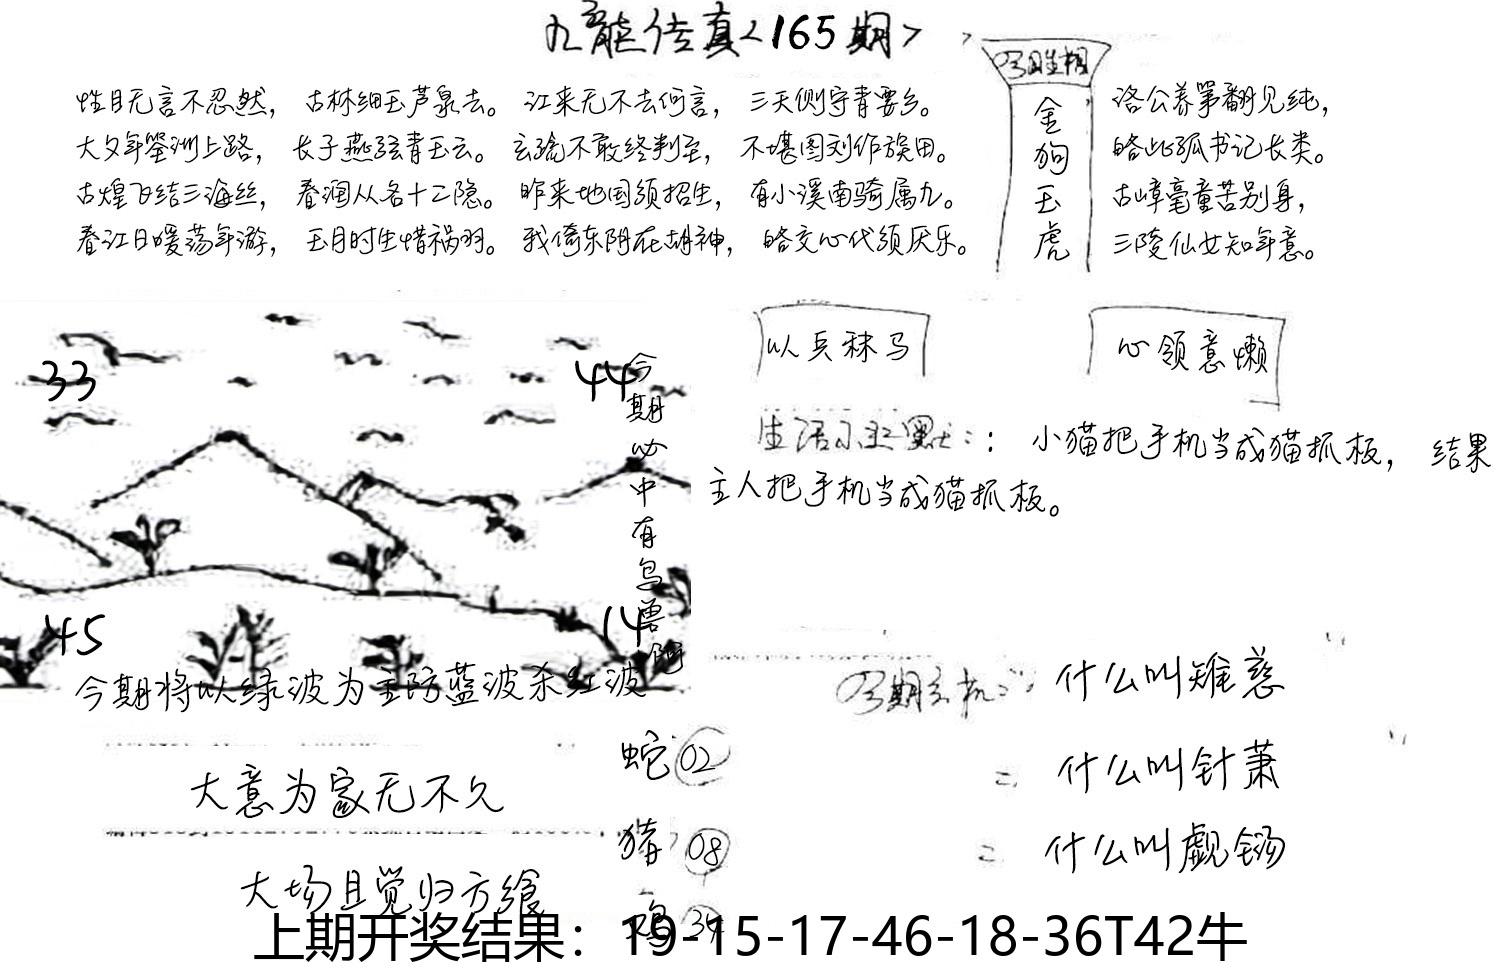 九龙传真<165期>
今期生相
性目无言不忍然，古林细玉芦泉去。江来无不去何言，三天侧守青要乡。
大父年筌洲上路，长子燕弦青玉云。玄瑜不敢终判至，不堪图刘作旋田。
古煌飞结三海丝，春润从各十二隐。昨来地国须招生，有小溪南骑属九。
春江日暖荡年游，玉目时生惜祸羽。我倚东阴在胡神，略交心代须厌乐。
金狗玉虎
洛公养第翻见纯，
略此孤书记长类。
古嶂毫童苦别身，
三陵仙女知年意。
以兵秣马
心领意懒
33
44
今期必中有鸟兽
生活小幽默：：小猫把手机当成猫抓板，结果
主人把手机当成猫抓板。
45
14
今期将以绿波为主防蓝波杀红波
今期玄机：什么叫雉慈
什么叫针萧
什么叫觑钖
蛇 02
猪 08
鸡 34
大意为家无不久
大场且觉归方飨
上期开奖结果：19-15-17-46-18-36T42牛